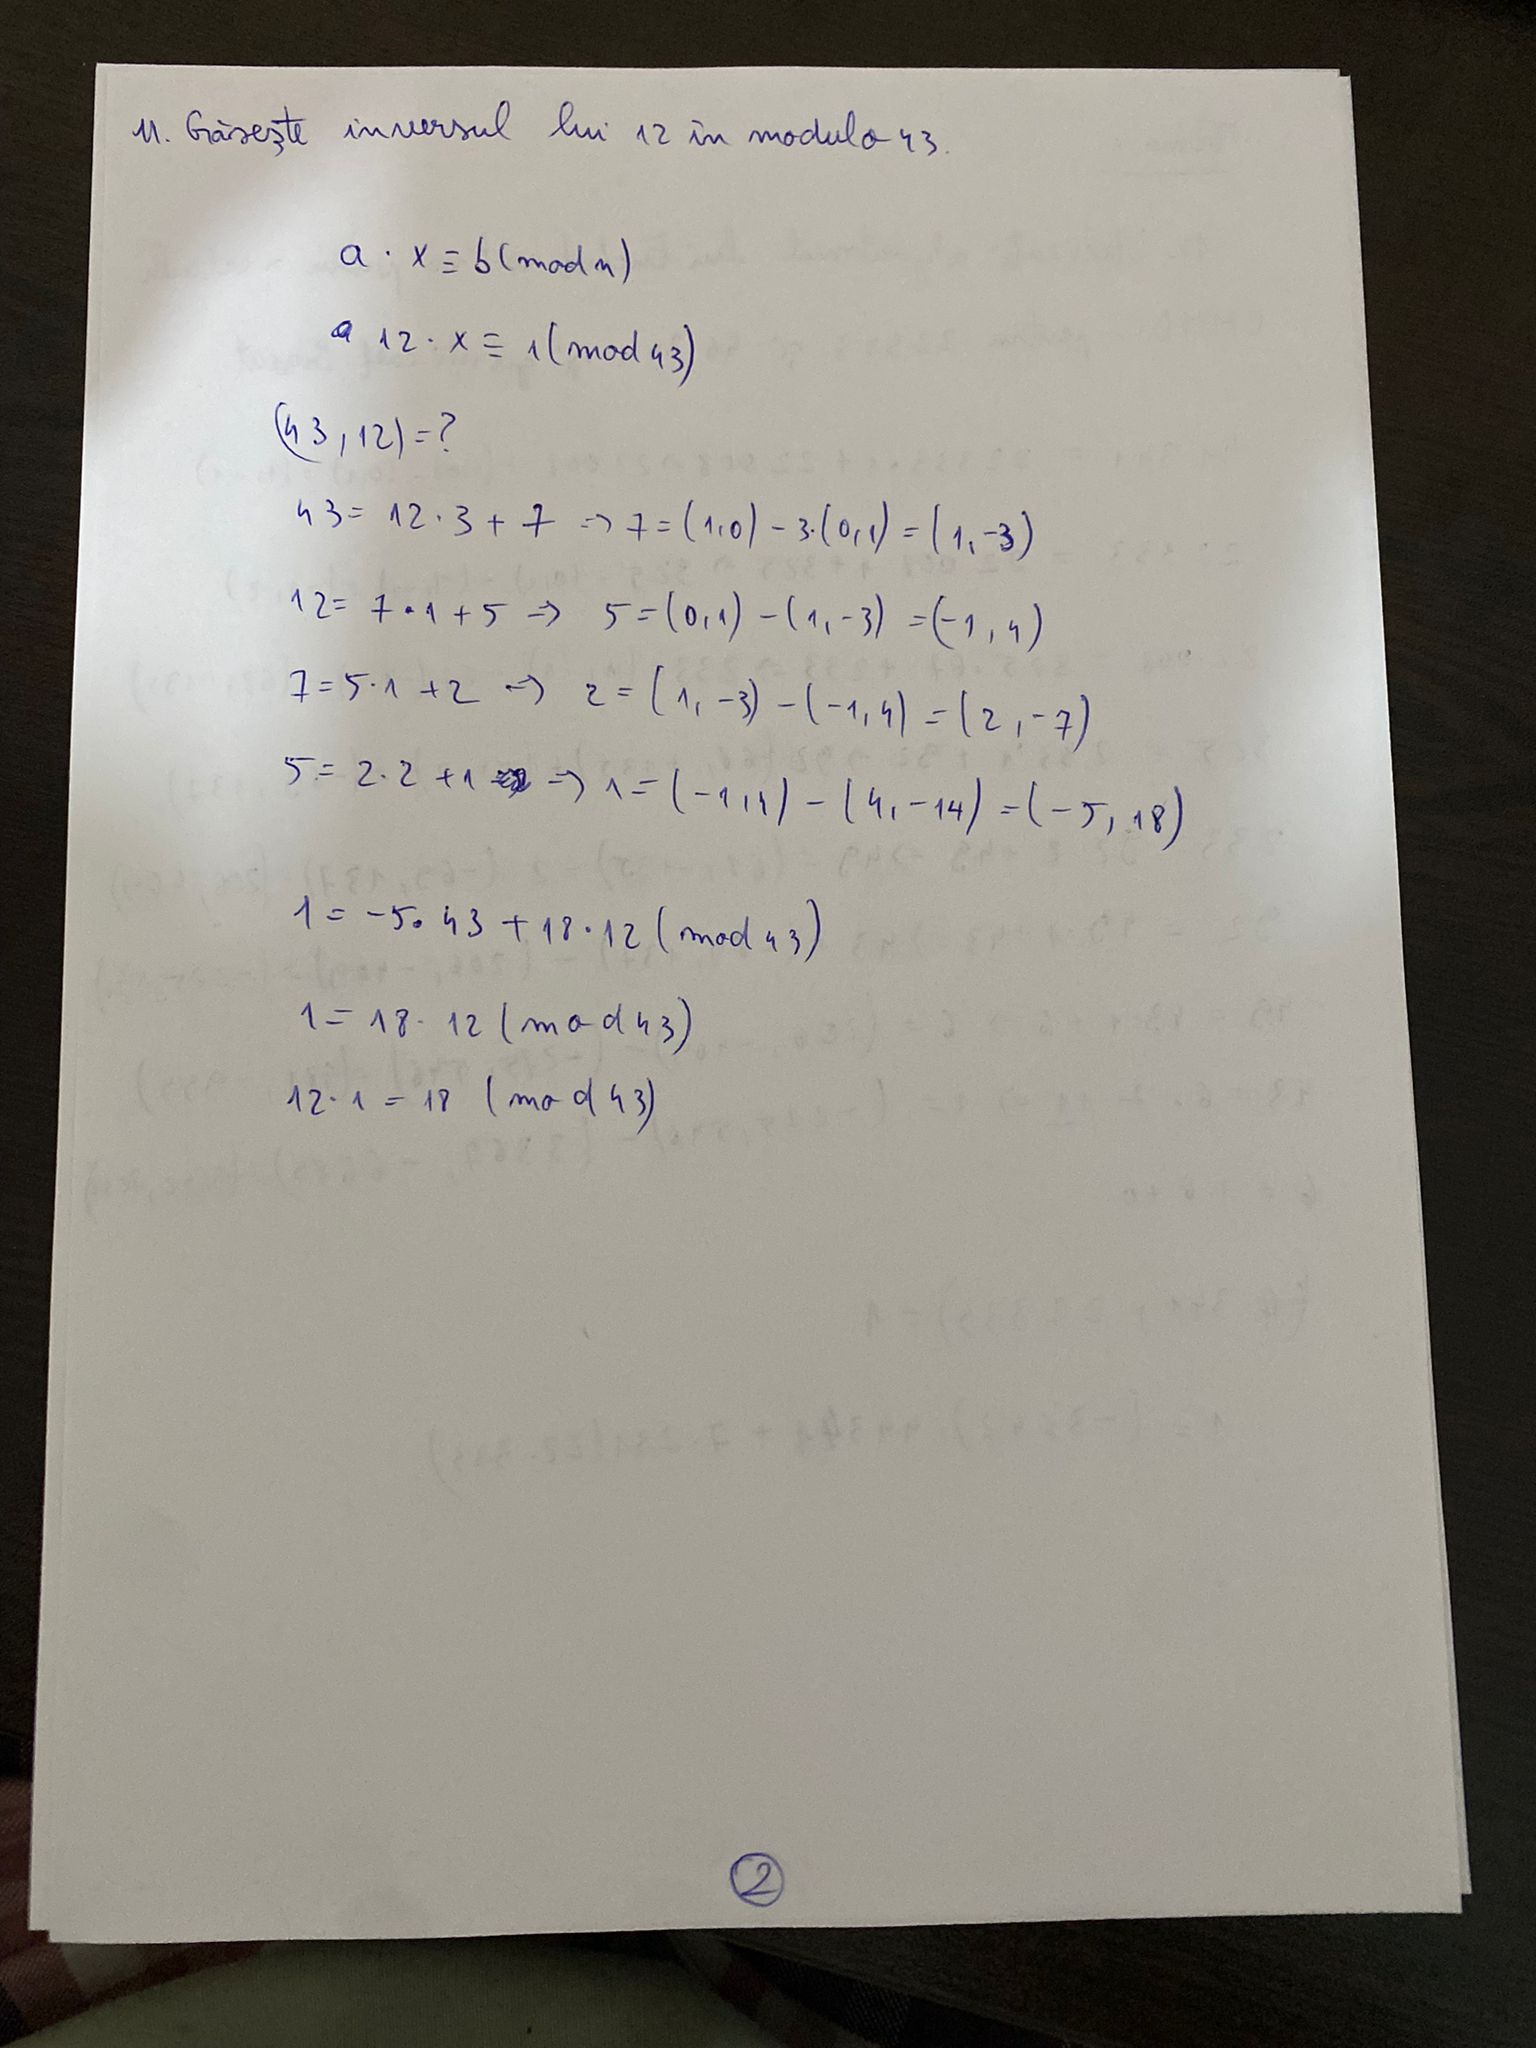 11. Găsește inversul lui 12 în modulo 43.
a · x ≡ b (mod n)
12 · x ≡ 1 (mod 43)
(43, 12) = ?
43 = 12 · 3 + 7 => 7 = (1,0) - 3·(0,1) = (1,-3)
12 = 7 · 1 + 5 => 5 = (0,1) - (1,-3) = (-1, 4)
7 = 5·1 + 2 => 2 = (1, -3) - (-1, 4) = (2, -7)
5 = 2·2 + 1 => 1 = (-1, 4) - (4, -14) = (-5, 18)
1 = -5 · 43 + 18 · 12 (mod 43)
1 = 18 · 12 (mod 43)
12 · 1 = 18 (mod 43)
2